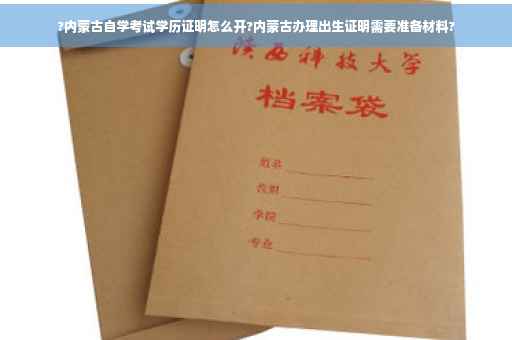 ?内蒙古自学考试学历证明怎么开?内蒙古办理出生证明需要准备材料?
陕西科技大学
档案袋
姓名
学院
专业